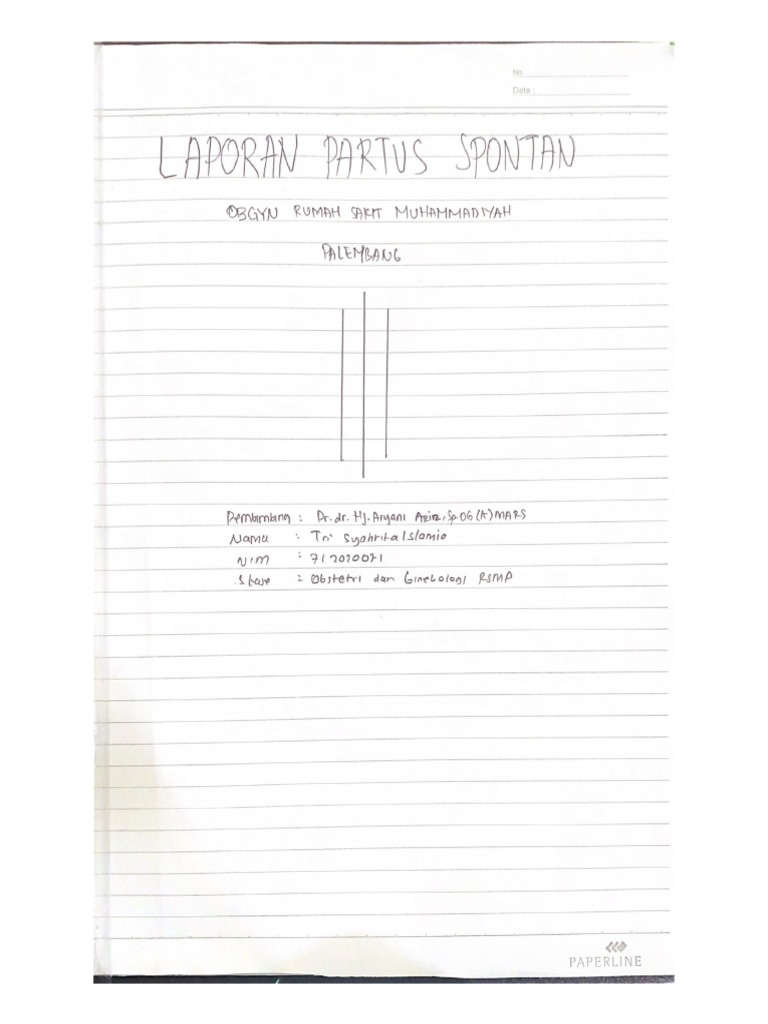 No
Date :
LAPORAN PARTUS SPONTAN
OBGYN RUMAH SAKIT MUHAMMADIYAH
PALEMBANG
Pembimbing : Dr. dr. Hj. Aryani Aziz, Sp.OG (K) MARS
Nama : Tri Syahrita Islamia
NIM : 712020021
Stase : Obstetri dan Ginekologi RSMP
PAPERLINE